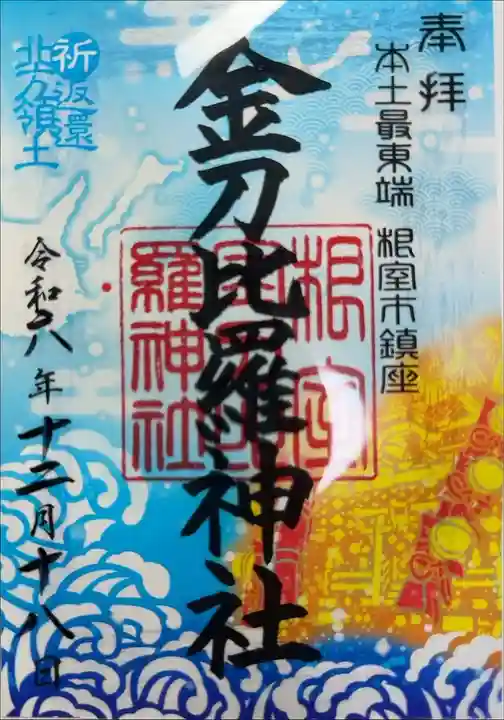 奉拝
本土最東端 根室市鎮座
金刀比羅神社
根室
金刀比
羅神社
祈返還
北方領土
令和八年十二月十八日